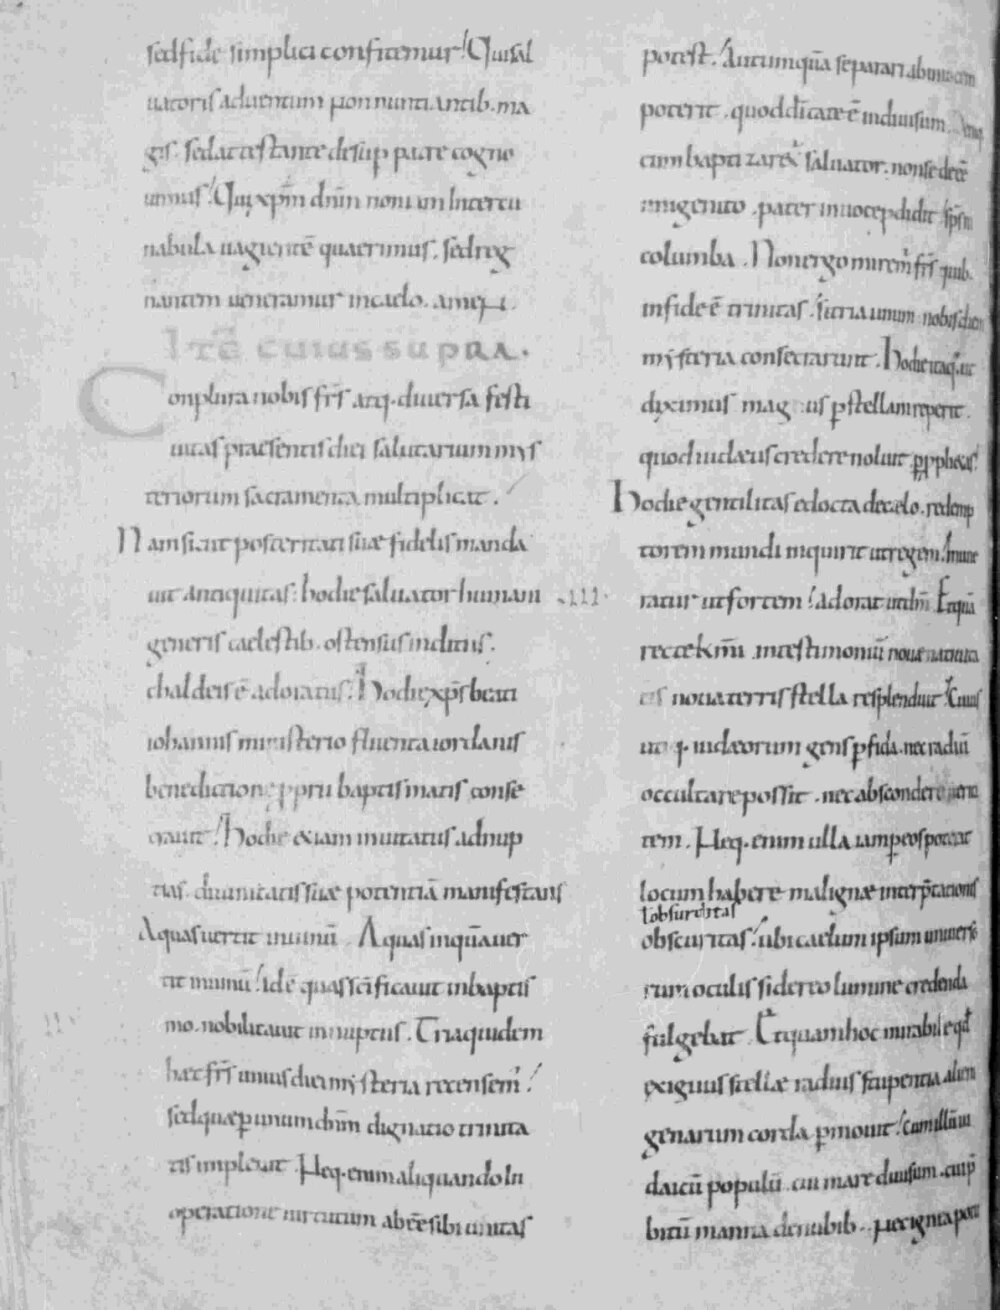 sed fide simplici confitemur! Qui sal
uatoris aduentum non nuntiantib. ma
gis. sed attestante desup patre cogno
uimus! Qui xp̄m dn̄m non iam inter cu
nabula uagientē quaerimus. sed reg
nantem ueneramur in caelo. amen.
Itē cuius supra.
Conplura nobis fr̄s atq. diuersa festi
uitas praesentis diei salutarium mys
teriorum sacramenta multiplicat.
Nam sicut posteritati suae fidelis manda
uit antiquitas: hodie saluator humani
generis caelestib. ostensus indiciis.
chaldeis ē adoratus. Hodie xp̄s beati
iohannis ministerio fluenta iordanis
benedictione pprii baptismatis conse
crauit! Hodie etiam inuitatus ad nup
tias. diuinitatis suae potentiā manifestans
Aquas uertit in uinū. Aquas inquā uer
tit in uinū! idē quas sc̄ificauit in baptis
mo. nobilitauit in nuptiis. Tria quidem
haec fr̄s unius diei mysteria recensem̄!
sed quae p unum dn̄m dignatio trinita
tis impleuit. Neq. enim aliquando in
operatione uirtutum ab re sibi unitas
potest! Aut umquā separari ab inuicem
poterit. quod dicatē ē indiuisum.
cum baptizaret saluator. non se deee
unigenito. pater in uoce pdidit sp̄s in
columba. Non ergo mirem̄ fr̄s quib.
in fide ē trinitas. si tria unum nobis diem
mysteria consecrarunt. Hodie itaq. ut
diximus magus p stellam reperit.
quod iudaeus credere noluit p prophetas!
.III.
Hodie gentilitas edocta de caelo. redemp
torem mundi inquirit ut regem! mune
ratur ut fortem! adorat ut dm̄. Et quā
recte km̄i in testimoniū nouae natiuita
tis noua terris stella resplenduit! Cuius
utiq. iudaeorum gens pfida. nec radiū
occultare possit. nec abscondere uerita
tem. Neq. enim ulla iam p eos poterat
locum habere malignae interp̄tationis
ł obsurditas
obscuritas! ubi caelum ipsum uniuerso
rum oculis sidereo lumine credenda
fulgebat. Et quam hoc mirabile qd
exiguus stellae radius stupentia alieni
genarum corda pmouit! cum illā iu
daicū populū. cui mare diuisum. cui p
bitū manna de nubib. nec ignita potu